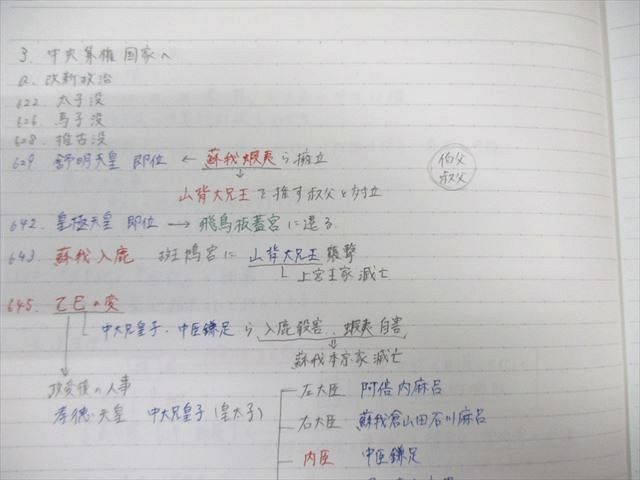 3. 中央集権国家へ
a. 改新政治
622 太子没
626 馬子没
628. 推古没
629 舒明天皇 即位 ← 蘇我蝦夷ら擁立
↓
山背大兄王を推す叔父と対立
伯父
叔父
642. 皇極天皇 即位 → 飛鳥板蓋宮に遷る
643. 蘇我入鹿 斑鳩宮に山背大兄王襲撃
上宮王家滅亡
645. 乙巳の変
中大兄皇子・中臣鎌足ら入鹿殺害、蝦夷自害
蘇我本宗家滅亡
政変後の人事
孝徳天皇 中大兄皇子(皇太子)
左大臣 阿倍内麻呂
右大臣 蘇我倉山田石川麻呂
内臣 中臣鎌足